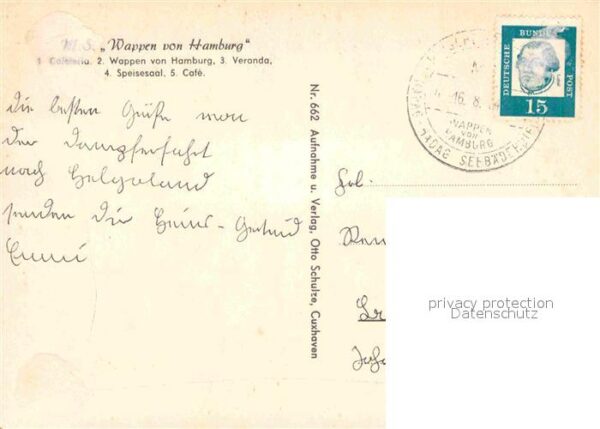 M.S. „Wappen von Hamburg"
1. Cafeteria. 2. Wappen von Hamburg, 3. Veranda,
4. Speisesaal, 5. Café.
die besten Grüße von
der Dampferfahrt
nach Helgoland
senden dir Heins-Gertrud
Emmi
Nr. 662 Aufnahme u. Verlag, Otto Schulze, Cuxhaven
DEUTSCHE BUNDESPOST
15
16. 8.
WAPPEN
von
HAMBURG
HADAG SEEBÄDER
privacy protection
Datenschutz